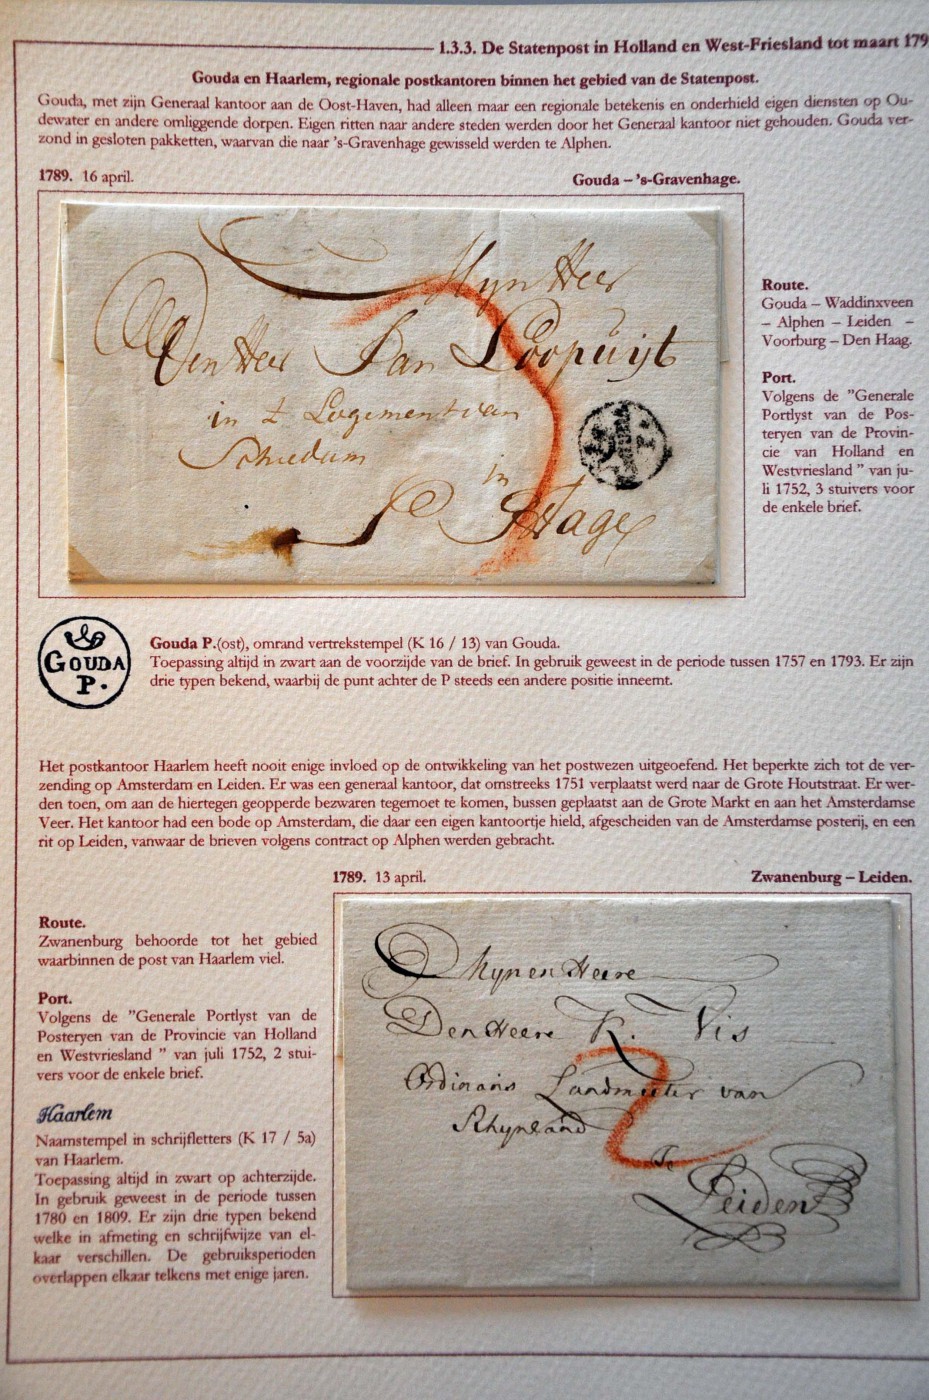 1.3.3. De Statenpost in Holland en West-Friesland tot maart 179
Gouda en Haarlem, regionale postkantoren binnen het gebied van de Statenpost.
Gouda, met zijn Generaal kantoor aan de Oost-Haven, had alleen maar een regionale betekenis en onderhield eigen diensten op Ou-
dewater en andere omliggende dorpen. Eigen ritten naar andere steden werden door het Generaal kantoor niet gehouden. Gouda ver-
zond in gesloten pakketten, waarvan die naar 's-Gravenhage gewisseld werden te Alphen.
1789. 16 april.
Gouda – 's-Gravenhage.
Mijn Heer
Den Heer Jan Loopuijt
in t Logement van
Schiedam
in
S Hage
Route.
Gouda – Waddinxveen
– Alphen – Leiden –
Voorburg – Den Haag.
Port.
Volgens de "Generale
Portlyst van de Pos-
teryen van de Provin-
cie van Holland en
Westvriesland " van ju-
li 1752, 3 stuivers voor
de enkele brief.
GOUDA
P.
Gouda P.(ost), omrand vertrekstempel (K 16 / 13) van Gouda.
Toepassing altijd in zwart aan de voorzijde van de brief. In gebruik geweest in de periode tussen 1757 en 1793. Er zijn
drie typen bekend, waarbij de punt achter de P steeds een andere positie inneemt.
Het postkantoor Haarlem heeft nooit enige invloed op de ontwikkeling van het postwezen uitgeoefend. Het beperkte zich tot de ver-
zending op Amsterdam en Leiden. Er was een generaal kantoor, dat omstreeks 1751 verplaatst werd naar de Grote Houtstraat. Er wer-
den toen, om aan de hiertegen geopperde bezwaren tegemoet te komen, bussen geplaatst aan de Grote Markt en aan het Amsterdamse
Veer. Het kantoor had een bode op Amsterdam, die daar een eigen kantoortje hield, afgescheiden van de Amsterdamse posterij, en een
rit op Leiden, vanwaar de brieven volgens contract op Alphen werden gebracht.
1789. 13 april.
Zwanenburg – Leiden.
Route.
Zwanenburg behoorde tot het gebied
waarbinnen de post van Haarlem viel.
Port.
Volgens de "Generale Portlyst van de
Posteryen van de Provincie van Holland
en Westvriesland " van juli 1752, 2 stui-
vers voor de enkele brief.
Haarlem
Naamstempel in schrijfletters (K 17 / 5a)
van Haarlem.
Toepassing altijd in zwart op achterzijde.
In gebruik geweest in de periode tussen
1780 en 1809. Er zijn drie typen bekend
welke in afmeting en schrijfwijze van el-
kaar verschillen. De gebruiksperioden
overlappen elkaar telkens met enige jaren.
Mynen Heere
Den Heere K. Vis
2
Ordinaris Landmeeter van
Rhynland
Te
Leiden